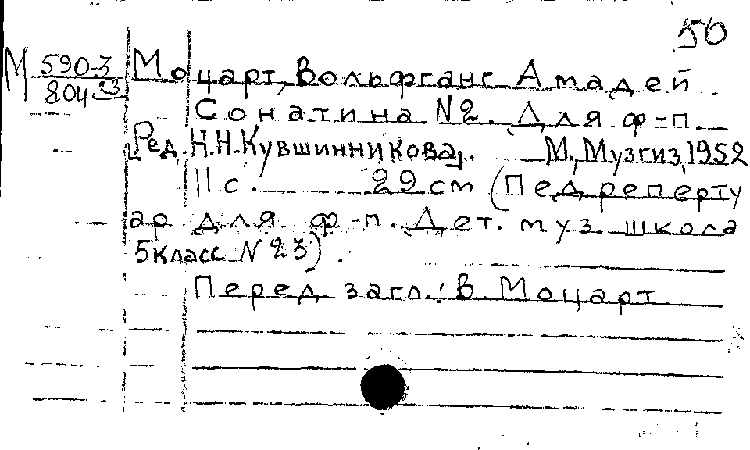 50
М 590-3 Моцарт, Вольфганг Амадей.
804 Сонатина №2. Для ф-п.
Ред. Н.Н.Кувшинникова. М., Музгиз, 1952
11 с. 29 см (Пед. реперту
ар для ф-п. Дет. муз. школа
5 класс N 23).
Перед загл.: В. Моцарт